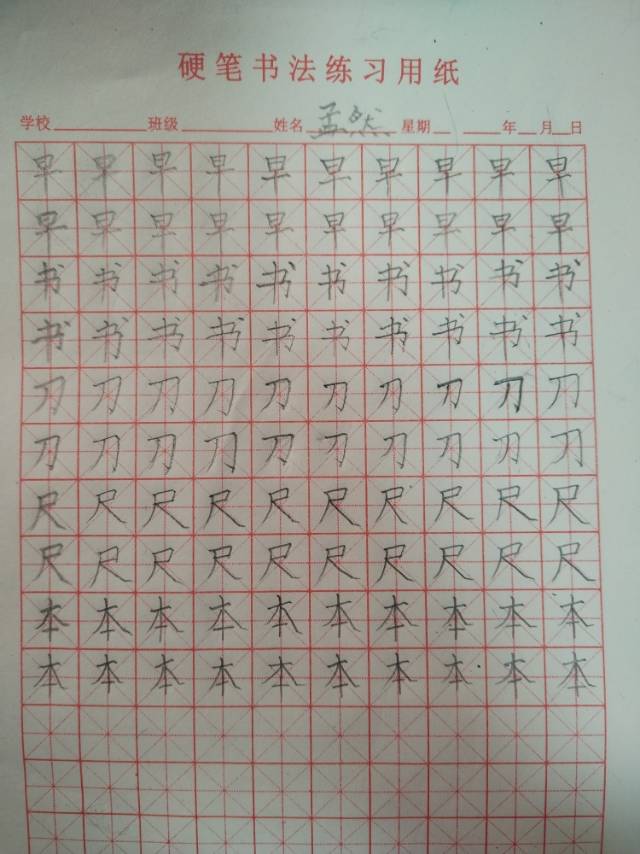 硬笔书法练习用纸
学校 班级 姓名 孟然 星期 年 月 日
早 早 早 早 早 早 早 早 早 早
早 早 早 早 早 早 早 早 早 早
书 书 书 书 书 书 书 书 书 书
书 书 书 书 书 书 书 书 书 书
刀 刀 刀 刀 刀 刀 刀 刀 刀 刀
刀 刀 刀 刀 刀 刀 刀 刀 刀 刀
尺 尺 尺 尺 尺 尺 尺 尺 尺 尺
尺 尺 尺 尺 尺 尺 尺 尺 尺 尺
本 本 本 本 本 本 本 本 本 本
本 本 本 本 本 本 本 本 本 本